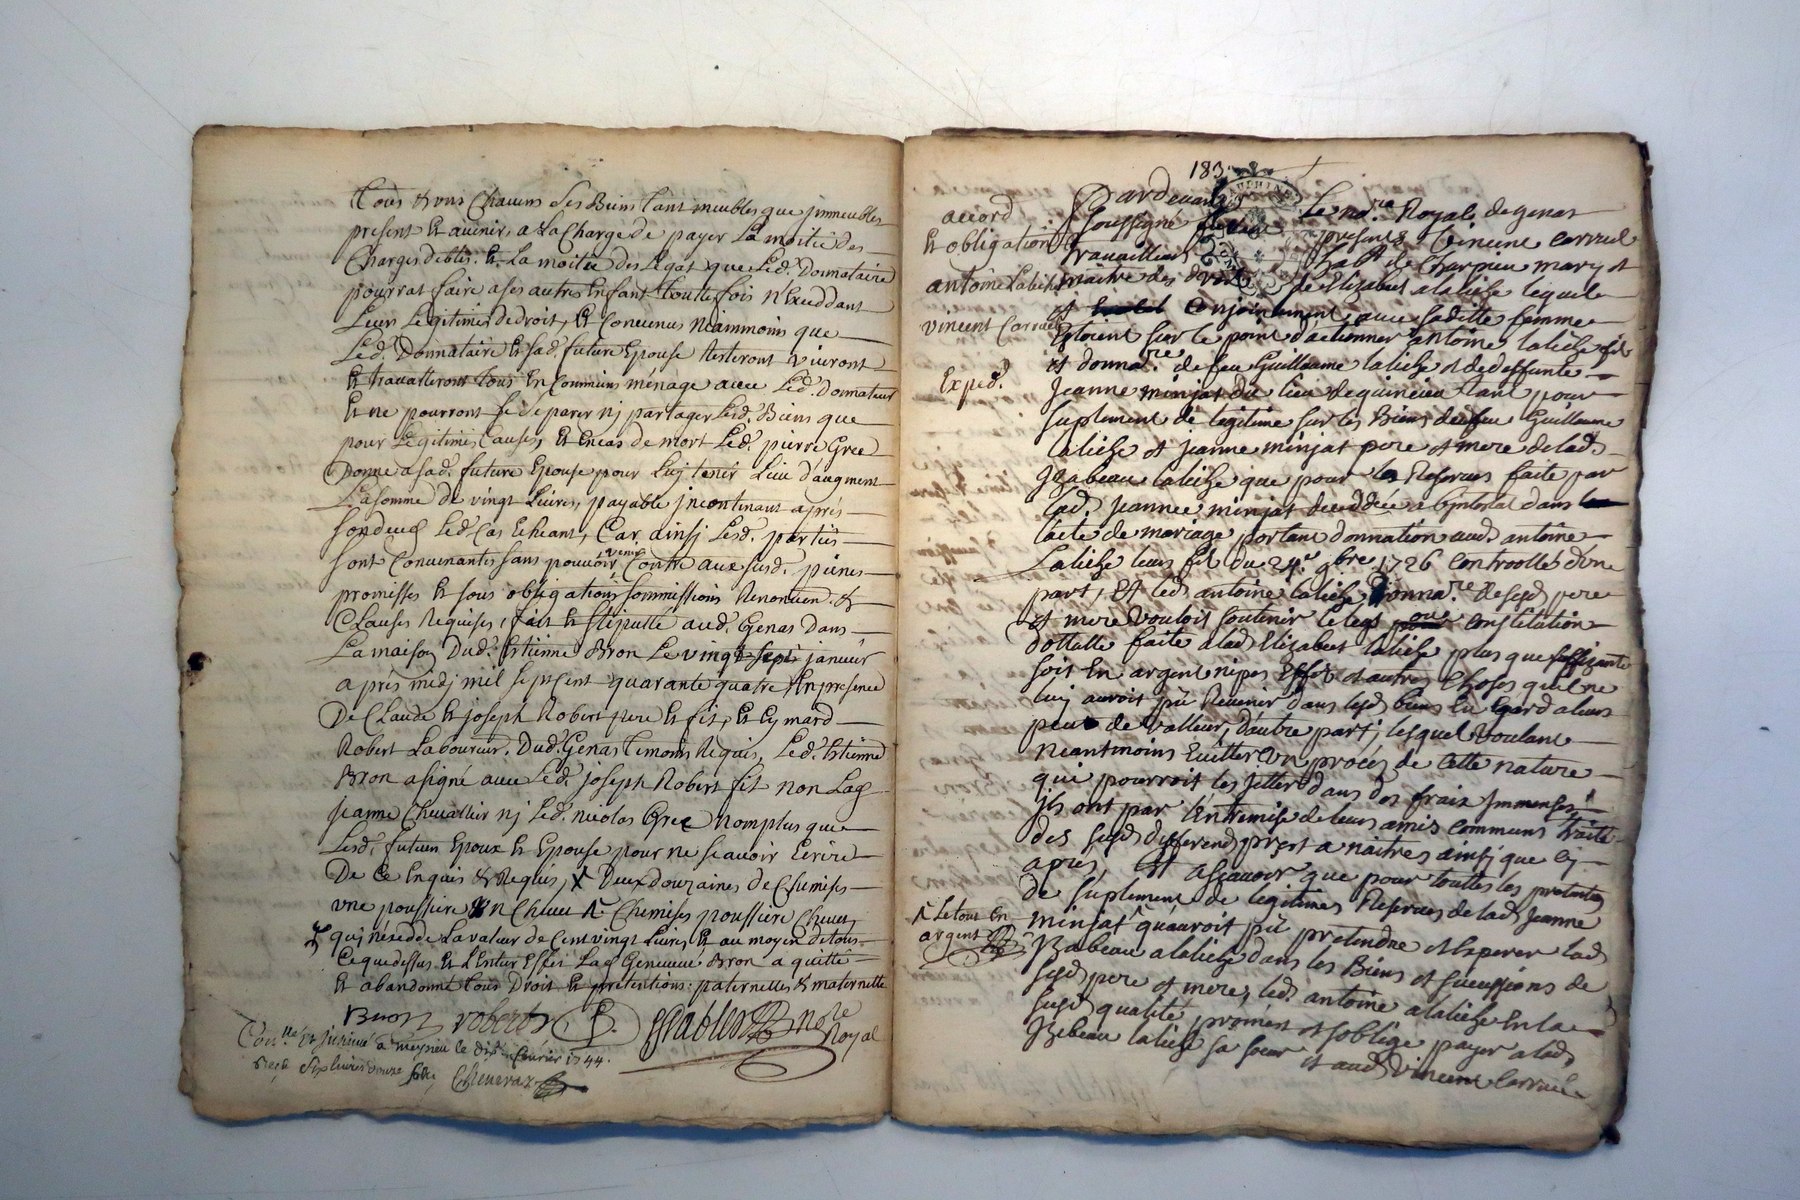 Tous & uns Chacuns Ses Biens tant meubles que jmmeubles
present Et avenir, a La Charge de payer La moitié des
Charges debtes. Et La moitié des Legat que Led. Donnataire
pourrat faire a ses autres Enfant toutte fois n'Exceddant
Leur Legitimes de droit, Et Convenus Neammoins que
Led. Donnataire Et Sad. future Epouse resteront vivront
Et travailleront tous En Commun ménage avec Led. Donnateur
Et ne pourront se Séparer nj partager Lesd. Biens que
pour Legitimes Causes, Et En cas de mort Led. pierre Gree
Donne a Sad. future Epouse pour Luy tenir Lieu d'augment
La somme de vingt Livres, payable jncontinant aprés
Son deces Led. Cas Echeant, Car ainsj Lesd. partiës
sont Convenantes sans pouvoir venir Contre aux susd. peines
promesses Et sous obligations sommissions Renontien. &
Clauses Requises, fait Et Stipullé aud. Genas Dans
La maison Dud. Estienne Bron Le vingt sept janvier
après midj mil sept Cent quarante quatre En presence
De Claude Et joseph Robert pere Et fils, Et Eymard
Robert Laboureur. Dud. Genas temoins Requis, Led. Estienne
Bron a signé avec Led. joseph Robert fil non Lad.
jeanne Chevallier nj Led. nicolas Gree nomplus que
Lesd. futurs Epoux Et Epouse pour ne sçavoir Ecrire
De Ce Enquis & Requis, X Deux douzaines de Chemises
une poussiere
qui n'exedde La valeur de Cent vingt Livres, Et au moyen de tous
Ce que dessus Et L'Entier Effet Lad. Genevieve Bron a quitté
Et abandonné tous Droit Et pretentions paternelles & maternelle
Bron robert
nore
Royal
Con.lle Et jnsinué a meysieu le février 1744.
Reçu six livres douze sols
183
accord
Et obligation
antoine Lalich
vincent Carruel
Exped.
Pardevant Le no.re Royal de genas
soussigné present Vincent Carruel
travailleur hab.t de Charpieu mary &
maitre des droits de Elizabet alalich lequel
et Conjointement avec saditte femme
Etoient sur le point d'actionner antoine lalich fils
et donnat.re de feu Guillaume lalich et de deffunte
Jeanne minjat du lieu de quincieu tant pour
suplement de legitime sur les Biens de feu Guillaume
lalich et Jeanne minjat pere et mere de lad.
Jzabeau lalich que pour les Reserves faite par
lad. Jeanne minjat deceddée abintestat dans
l'acte de mariage portant donnation aud. antoine
Lalich leurs fil du 24.e 9bre 1726 controollés d'une
part, Et led. antoine lalich donna.re desesd. pere
et mere vouloit soutenir le legs ou constitution
dottalle faite a lad. Elizabet lalich plus que suffizante
soit En argent nipes Effet et autres choses qu'il ne
luy auroit pû Revenir dans lesd. biens En Egard a leurs
peu de valleur, d'autre part; lesquel voulant
neantmoins Euitter un procés de cette nature
qui pourroit les jetter dans des fraix Jmmenses,
jls ont par l'entremise de leurs amis communs traité
des susd. differend prest a naitres ainsj que cy
apres, asçavoir que pour touttes les pretentions
de suplement de legitimes Reserves de lad. Jeanne
minjat qu'auroit pû pretendre et Esperer lad.
Jzabeau alalich dans les Biens et sucessions de
sesd. pere et mere, led. antoine alalich En la
susd. qualité promest et s'oblige payer a lad.
Jzebeau lalich sa sœur et aud. Vincent Carruel
Le tout en
argent